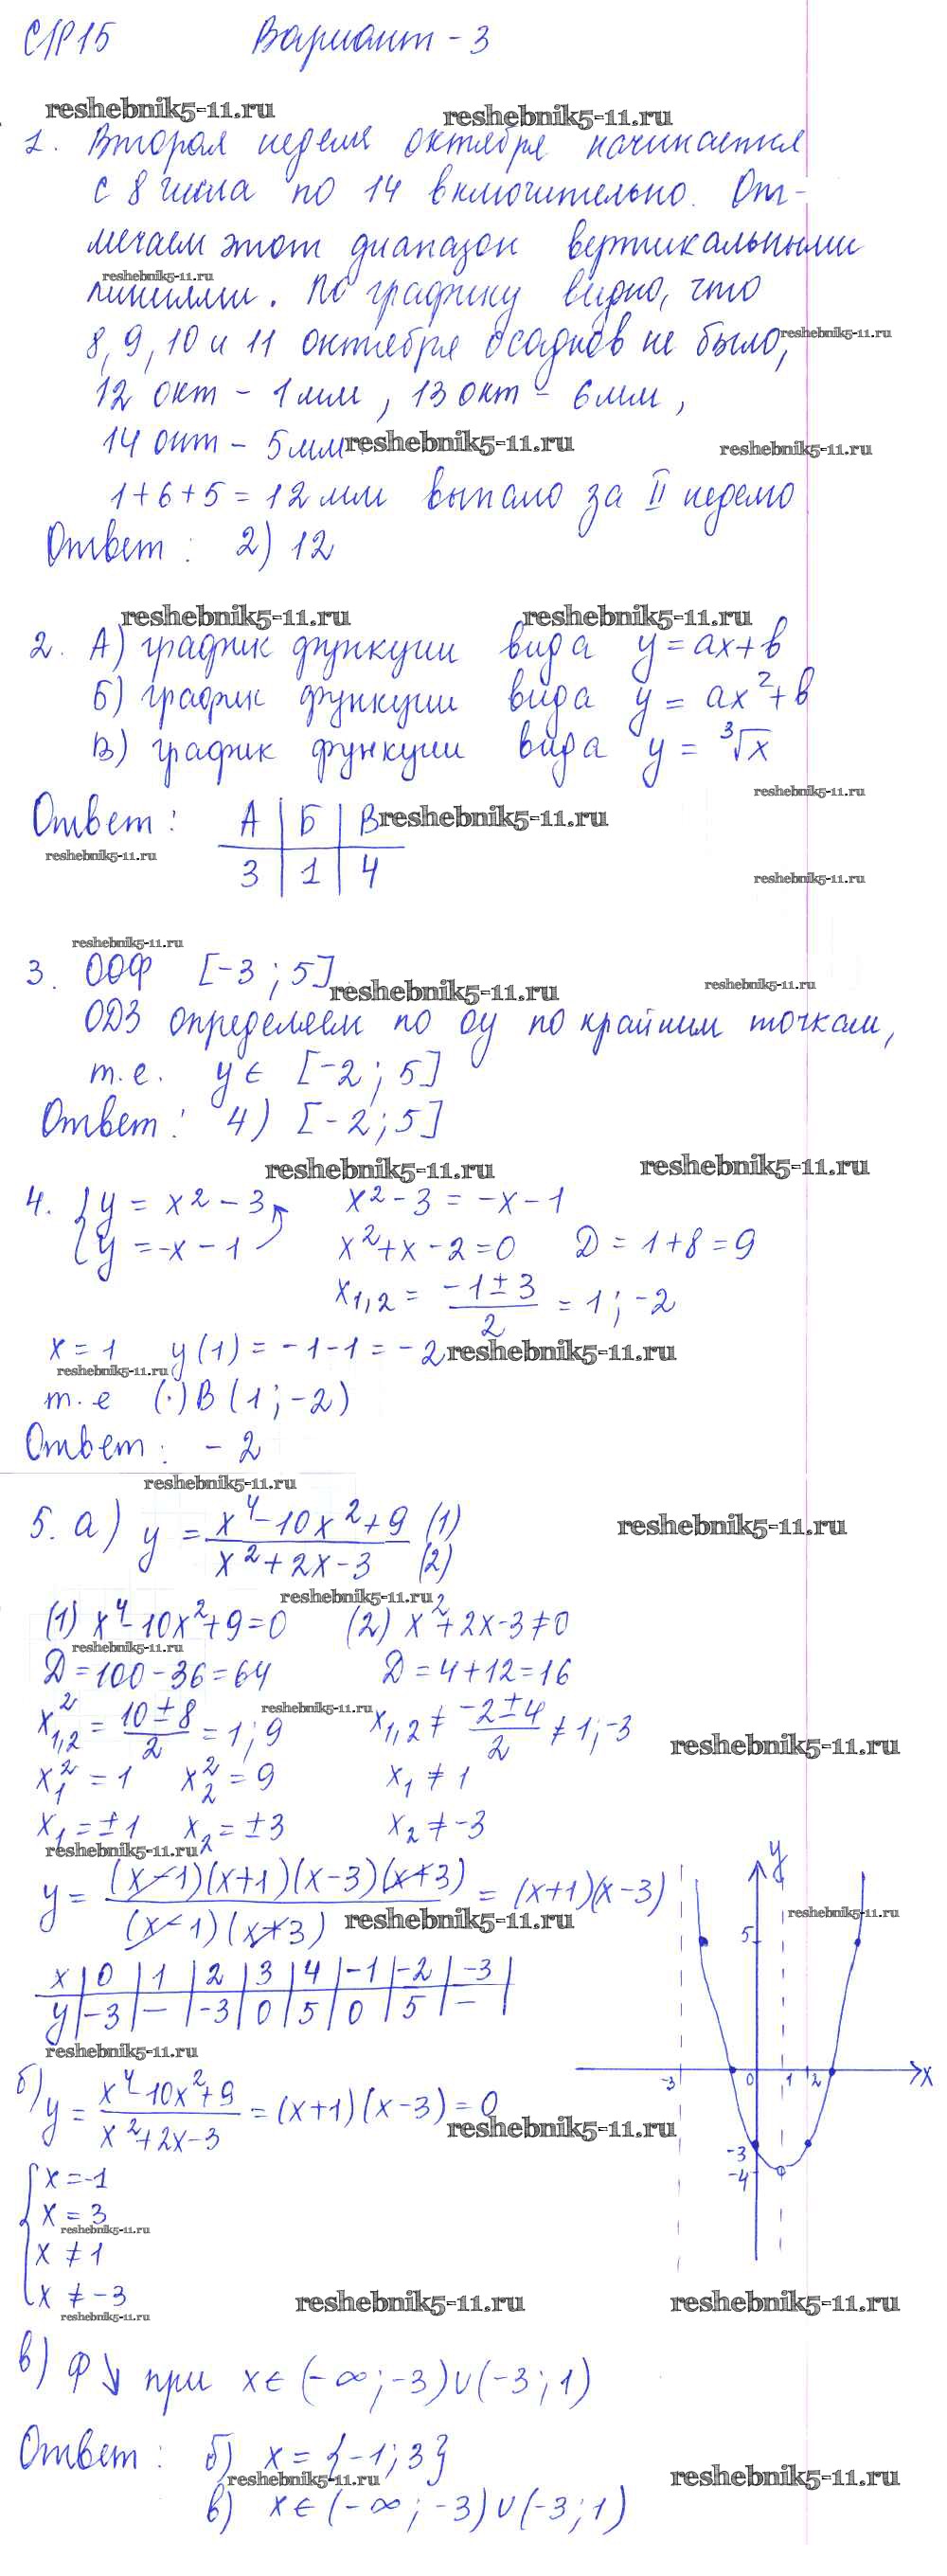 С/Р 15 Вариант - 3
reshebnik5-11.ru reshebnik5-11.ru
1. Вторая неделя октября начинается
с 8 числа по 14 включительно. От-
мечаем этот диапазон вертикальными
reshebnik5-11.ru
линиями. По графику видно, что
8, 9, 10 и 11 октября осадков не было, reshebnik5-11.ru
12 окт - 1 мм, 13 окт - 6 мм,
14 окт - 5 мм reshebnik5-11.ru reshebnik5-11.ru
1+6+5=12 мм выпало за II неделю
Ответ: 2) 12
reshebnik5-11.ru reshebnik5-11.ru
2. А) график функции вида y=ax+b
Б) график функции вида y=ax²+b
В) график функции вида y=∛x
reshebnik5-11.ru
Ответ: А | Б | В reshebnik5-11.ru
reshebnik5-11.ru 3 | 1 | 4 reshebnik5-11.ru
reshebnik5-11.ru
3. ООФ [-3; 5] reshebnik5-11.ru reshebnik5-11.ru
ОДЗ определяем по оу по крайним точкам,
т.е. y∈ [-2; 5]
Ответ: 4) [-2; 5]
reshebnik5-11.ru reshebnik5-11.ru
4. {y=x²-3 x²-3=-x-1
{y=-x-1 x²+x-2=0 D=1+8=9
x1,2 = (-1±3)/2 = 1; -2
x=1 y(1)=-1-1=-2 reshebnik5-11.ru
reshebnik5-11.ru
т.е (·) В (1; -2)
Ответ: -2
reshebnik5-11.ru
5. а) y = (x⁴-10x²+9)/(x²+2x-3) (1) (2) reshebnik5-11.ru
reshebnik5-11.ru
(1) x⁴-10x²+9=0 (2) x²+2x-3≠0
reshebnik5-11.ru
D=100-36=64 D=4+12=16
reshebnik5-11.ru
x²1,2 = (10±8)/2 = 1; 9 x1,2 ≠ (-2±4)/2 ≠ 1; -3
reshebnik5-11.ru
x1²=1 x2²=9 x1≠1
x1=±1 x2=±3 x2≠-3
reshebnik5-11.ru
y = (x-1)(x+1)(x-3)(x+3)/(x-1)(x+3) = (x+1)(x-3)
reshebnik5-11.ru
x | 0 | 1 | 2 | 3 | 4 | -1 | -2 | -3 |
y | -3 | — | -3 | 0 | 5 | 0 | 5 | — |
reshebnik5-11.ru
y
reshebnik5-11.ru
5
-3 0 1 2 x
-3
-4
б) y = (x⁴-10x²+9)/(x²+2x-3) = (x+1)(x-3)=0
reshebnik5-11.ru
{x=-1
x=3
reshebnik5-11.ru
x≠1
x≠-3
reshebnik5-11.ru reshebnik5-11.ru
reshebnik5-11.ru
в) Ф↘ при x∈(-∞; -3)∪(-3; 1)
Ответ: б) x={-1; 3}
reshebnik5-11.ru reshebnik5-11.ru
в) x∈(-∞; -3)∪(-3; 1)